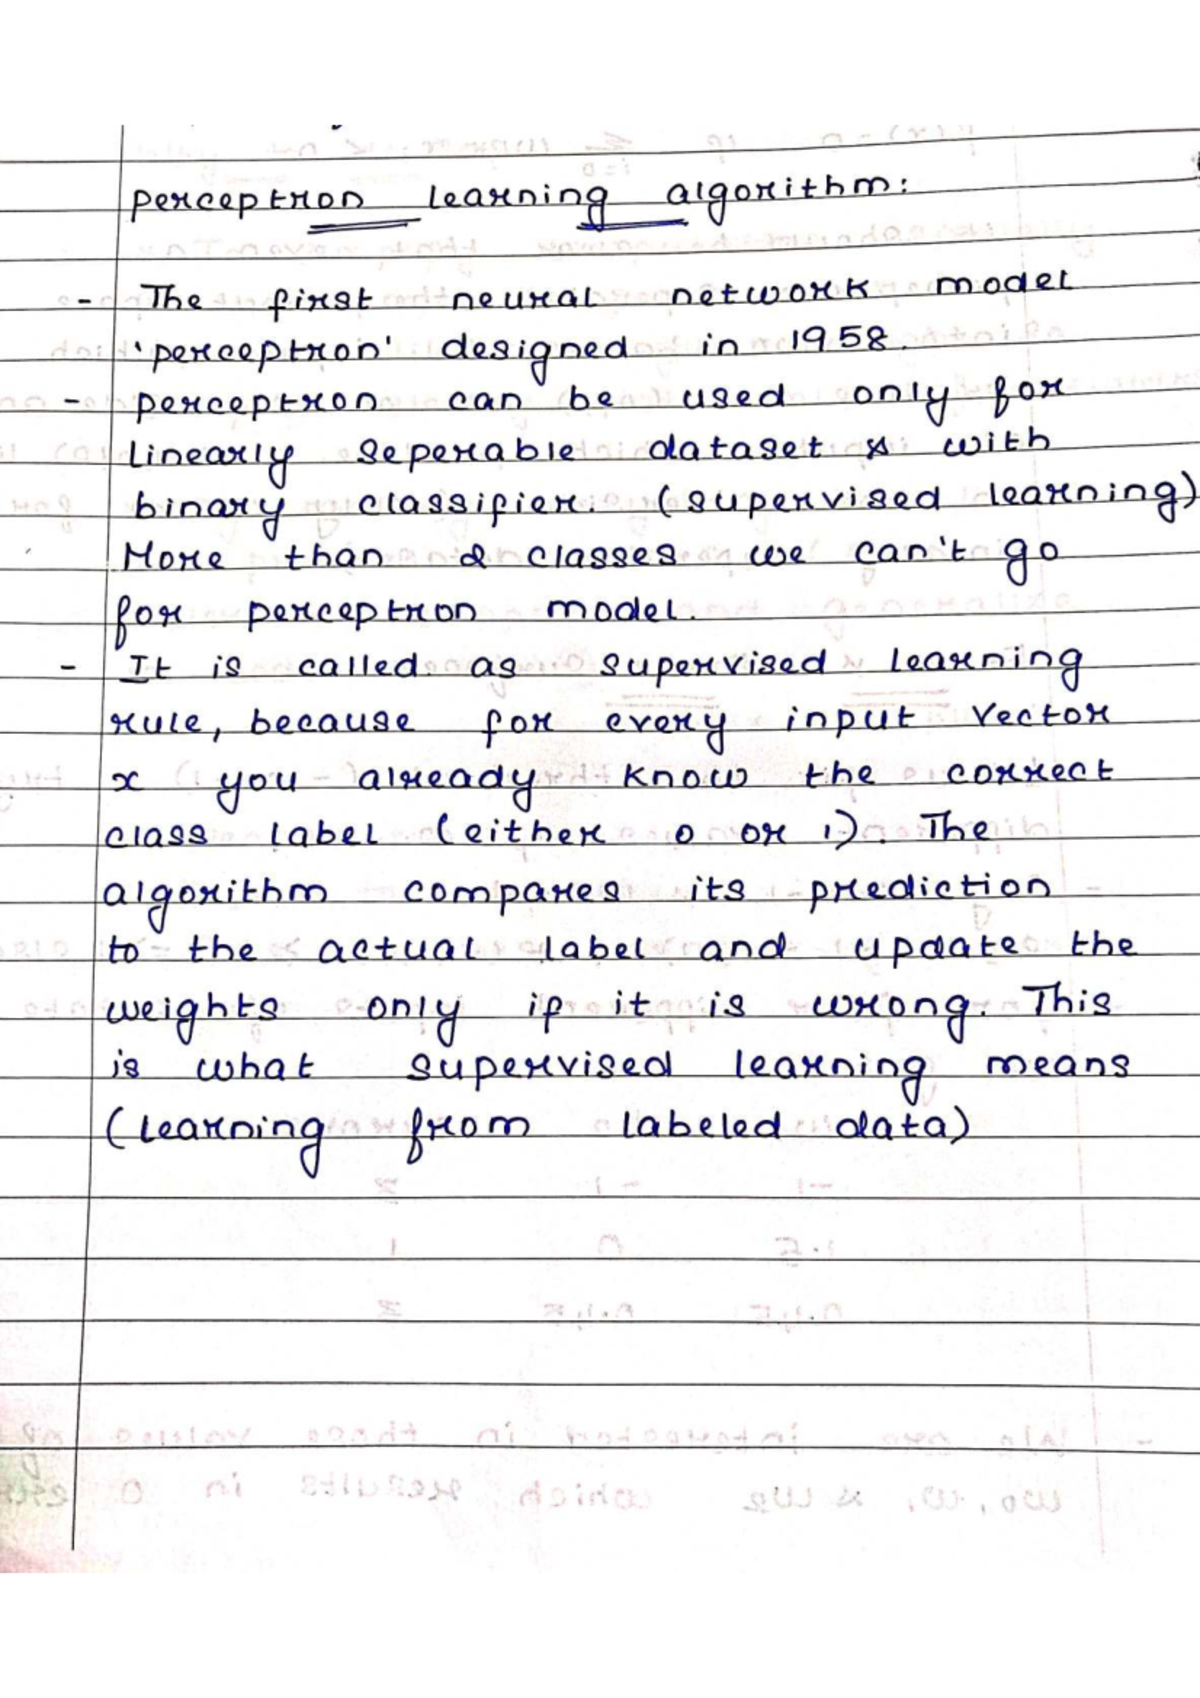 perceptron learning algorithm:
- The first neural network model
'perceptron' designed in 1958.
- perceptron can be used only for
linearly seperable dataset & with
binary classifier. (supervised learning)
More than 2 classes we can't go
for perceptron model.
- It is called as supervised learning
rule, because for every input vector
x you already know the correct
class label (either 0 or 1). The
algorithm compares its prediction
to the actual label and update the
weights only if it is wrong. This
is what supervised learning means
(learning from labeled data)